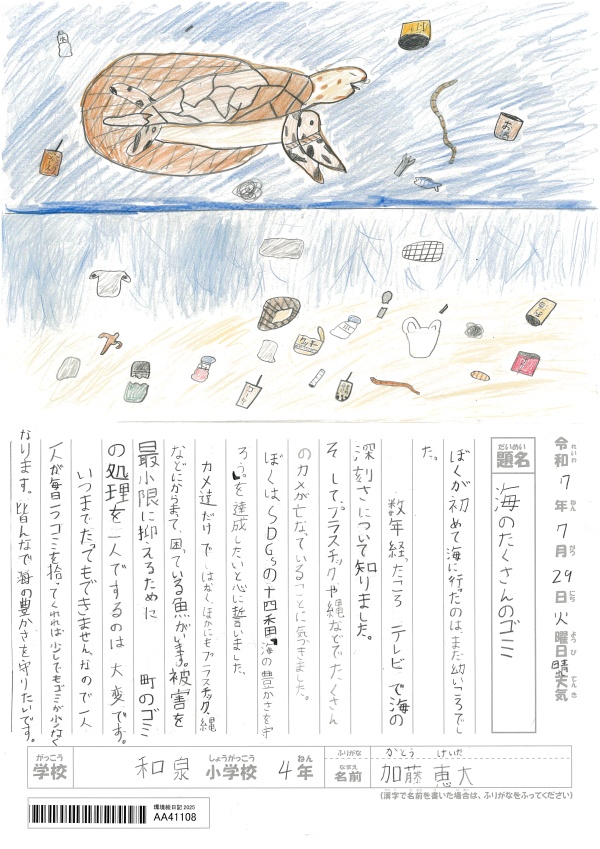 水
お茶
クッキー
令和7年7月29日火曜日 天気 晴
れいわ ねん がつ にち ようび てんき
だいめい
題名
海のたくさんのゴミ
ぼくが初めて海に行ったのはまだ幼いころでし
た。
数年経ったころ テレビで海の
深刻さについて知りました。
そして、プラスチックや縄などでたくさん
のカメが亡なっていることに気づきました。
ぼくは、SDGsの十四番「海の豊かさを守
ろう」を達成したいと心に誓いました。
カメ達だけではなく、ほかにもプラスチック、縄
などにからまて、困っている魚がいます。被害を
最小限に抑えるために 町のゴミ
の処理を一人でするのは 大変です。
いつまでたってもできません。なので一人
一人が毎日一つゴミを拾ってくれれば少しでもゴミが少なく
なります。皆んなで海の豊かさを守りたいです。
がっこう しょうがっこう ねん ふりがな かとう けいだ
学校 和泉 小学校 4年 なまえ 名前 加藤 恵大
(漢字で名前を書いた場合は、ふりがなをふってください)
環境絵日記 2025
AA41108